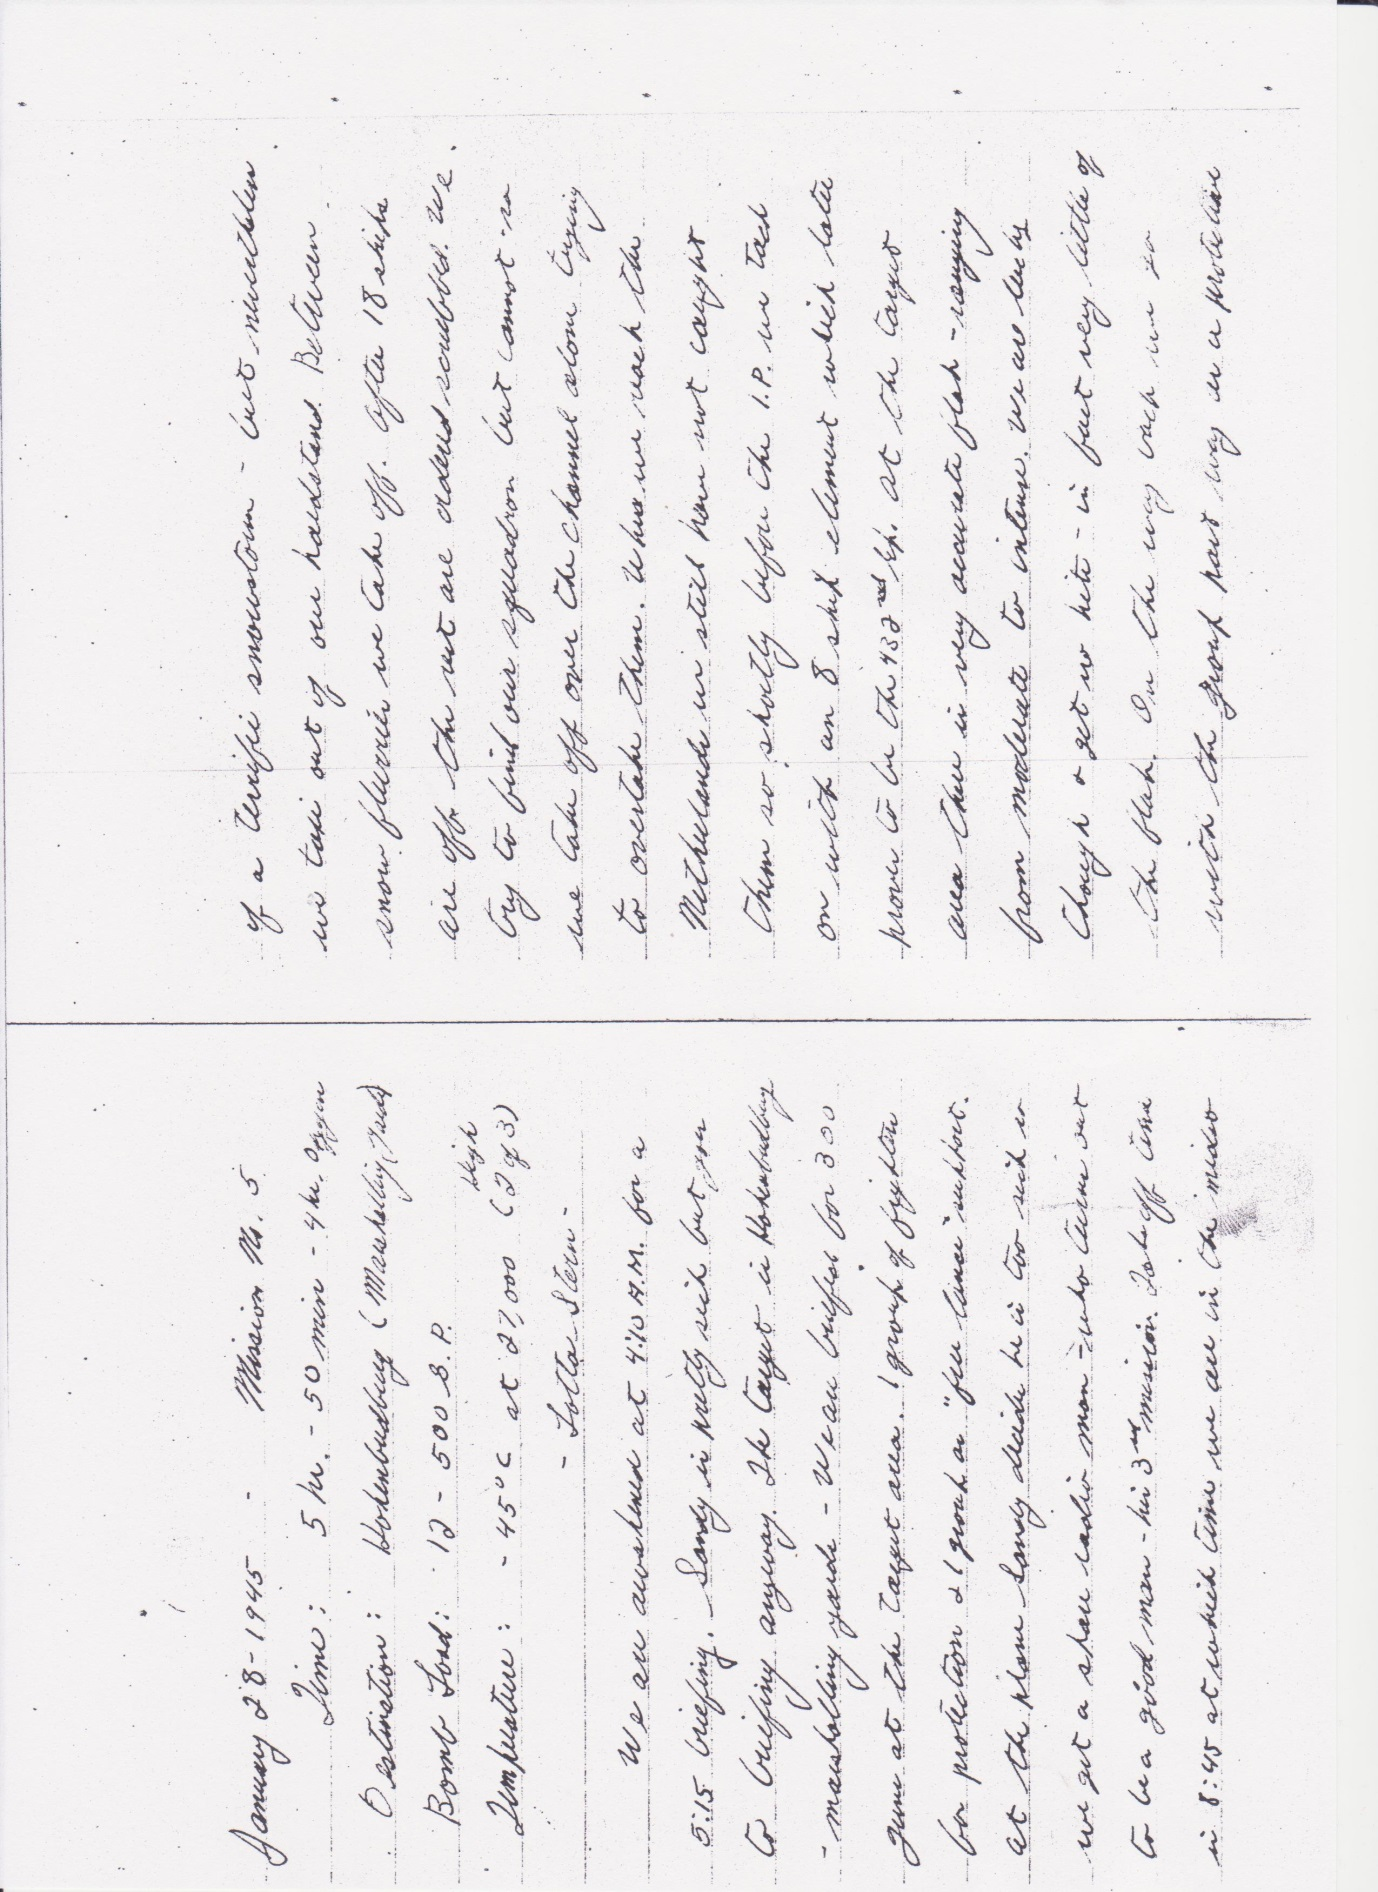 January 28-1945 - Mission No. 5
Time: 5 hr. - 50 min - 4 hr. Oxygen
Destination: Hohenbudburg (Marshalling Yards)
Bomb Load: 12 - 500 G.P.
Temperature: -45° C at 27,000 High (2 of 3)
- Lotta Stern -
We are awakened at 4:10 A.M. for a
5:15 briefing. Sandy is pretty sick but goes
to briefing anyway. The target is Hohenbudburg
- marshalling yards - We are briefed for 300
guns at the target area. 1 group of fighters
for protection & 1 group as "free lance" support.
at the plane Sandy decides he is too sick so
we get a spare radio man - who turns out
to be a good man - his 3rd mission. Take off time
is 8:45 at which time we are in the midst
of a terrific snowstorm - but nevertheless
we taxi out of our hardstand. Between
snow flurries we take off. After 18 ships
are off the rest are ordered scrubbed. We
try to find our squadron but cannot - so
we take off over the channel alone trying
to overtake them. When we reach the
Netherlands we still have not caught
them so shortly before the I.P. we tack
on with an 8 ship element which later
proves to be the 432nd Gp. At the target
area there is very accurate flak - ranging
from moderate to intense. We are lucky
though & get no hits - in fact very little of
the flak. On the way back we go
with the group part way on a protection